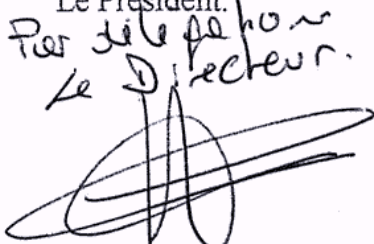 Le Président.
Par délégation
Le Directeur.